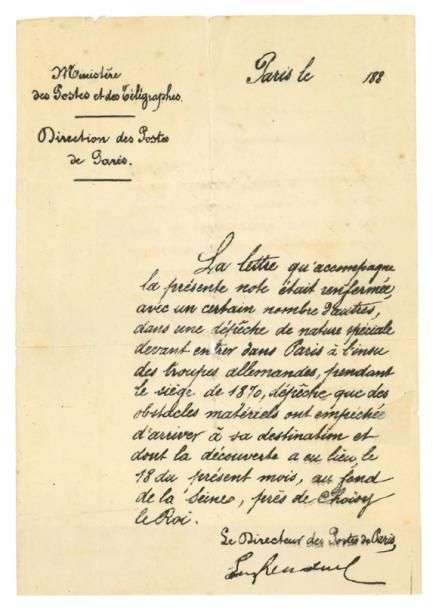 Ministère
des Postes et des Télégraphes.
Direction des Postes
de Paris.
Paris le 188
La lettre qu'accompagne
la présente note était renfermée,
avec un certain nombre d'autres,
dans une dépêche de nature spéciale
devant entrer dans Paris à l'insu
des troupes allemandes, pendant
le siège de 1870, dépêche que des
obstacles matériels ont empêchée
d'arriver à sa destination et
dont la découverte a eu lieu, le
18 du présent mois, au fond
de la Seine, près de Choisy
le Roi.
Le Directeur des Postes de Paris,